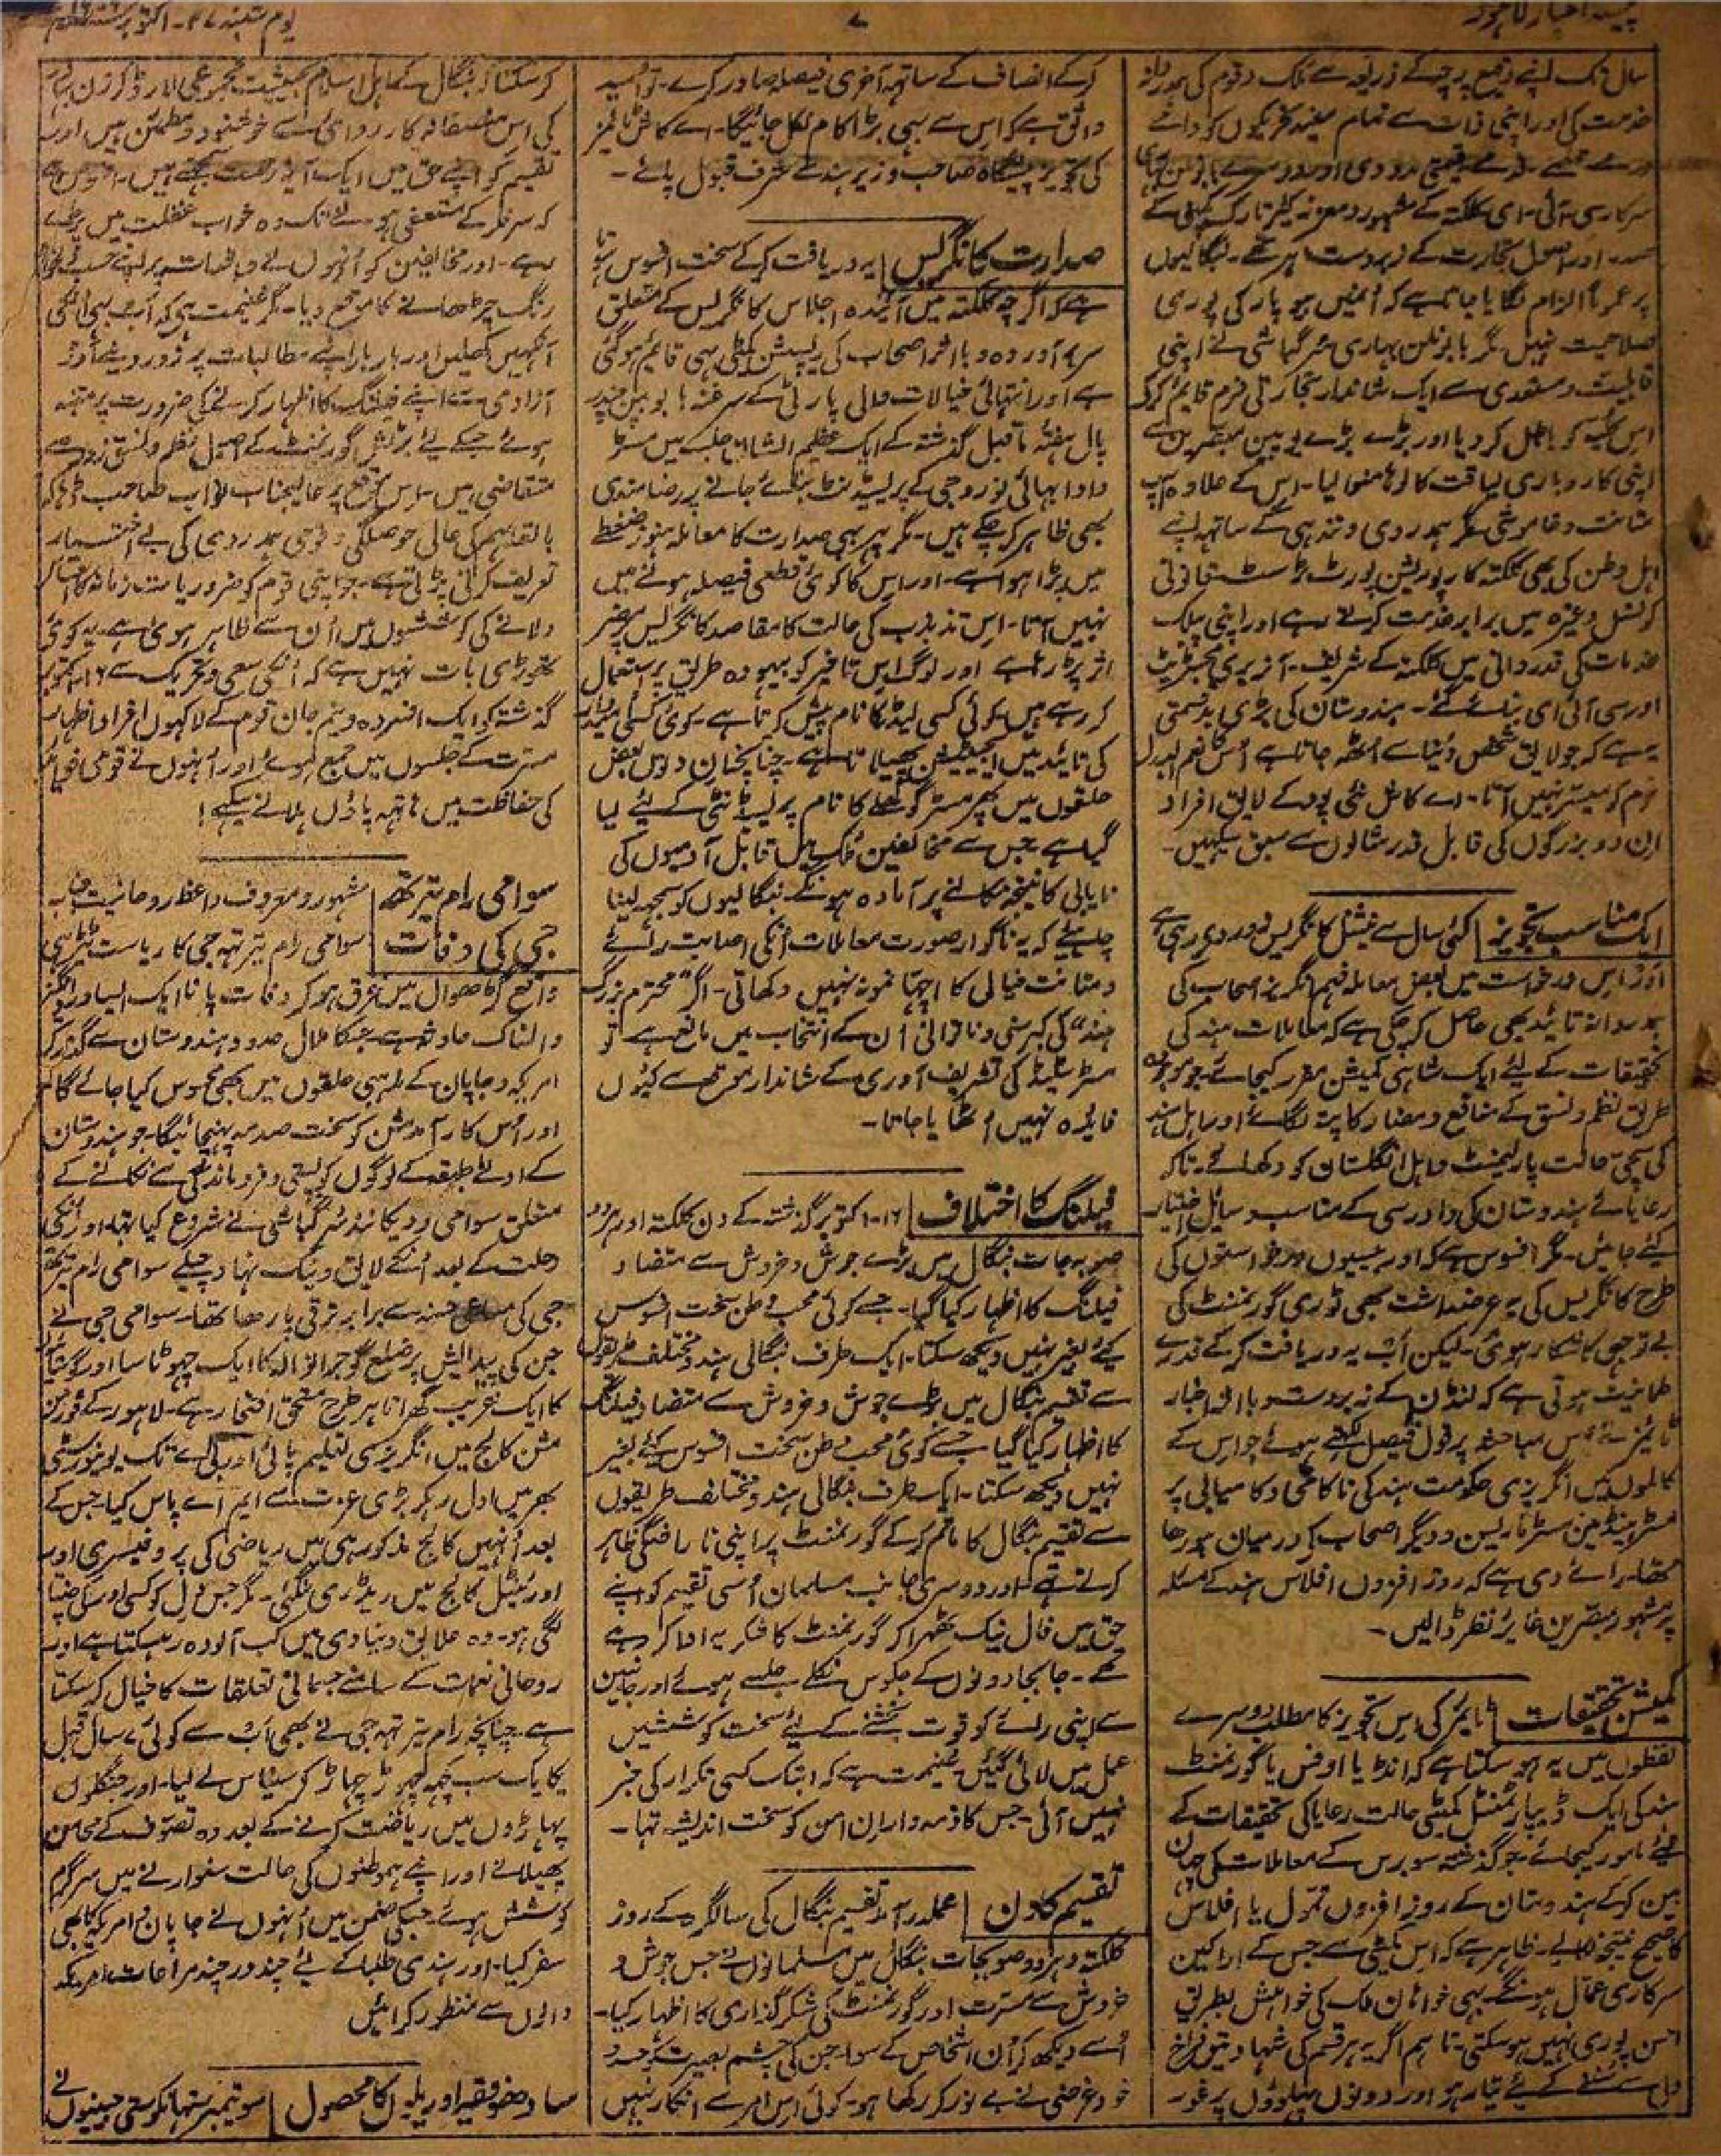 پیسہ اخبار لاہور
۷
یوم شنبہ ۲۷- اکتوبر
سال تک اپنے وقیع پرچے کے ذریعہ سے ملک و قوم کی
خدمت کی اور اپنی ذات سے تمام مفید تحریکوں کو
قیمتی مدد دی اور دوسرے بابو
سرکار سی-آئی-ای کلکتہ کے مشہور و معزز
اور اصول تجارت کے زبردست ماہر تھے- بنگالیوں
پر عموماً الزام لگایا جاتا ہے کہ اُنہیں بیوپار کی پوری
صلاحیت نہیں مگر بابو نلن بہاری سرگباشی نے اپنی
قابلیت و مستعدی سے ایک شاندار تجارتی فرم قائم کرکے
اس کلیہ کو باطل کر دیا اور بڑے بڑے یوروپین مبصرین سے
اپنی کاروباری لیاقت کا لوہا منوا لیا- اس کے علاوہ آپ
متانت و خاموشی مگر ہمدردی و تندہی کے ساتھ اپنے
اہل وطن کی بھی کلکتہ کارپوریشن پورٹ ٹرسٹ قانونی
کونسل وغیرہ میں برابر خدمت کرتے رہے اور اپنی پبلک
خدمات کی قدردانی میں کلکتہ کے شریف- آنریری مجسٹریٹ
اور سی آئی ای بنائے گئے- ہندوستان کی بڑی بدقسمتی
یہ ہے کہ جو لایق شخص دنیا سے اُٹھ جاتا ہے اُس کا نعم البدل
قوم کو میسر نہیں آتا- اے کاش نئی پود کے لایق افراد
ان دو بزرگوں کی قابل قدر مثالوں سے سبق سیکھیں-
ایک مناسب تجویز | کئی سال سے نیشنل کانگریس زور دے رہی ہے
اور اس درخواست میں بعض معاملہ فہم انگریز اصحاب کی
ہمدردانہ تائید بھی حاصل کر چکی ہے کہ معاملات ہند کی
تحقیقات کے لیئے ایک شاہی کمیشن مقرر کیجائے جو موجودہ
طریق نظم و نسق کے منافع و مضار کا پتہ لگائے اور اہل ہند
کی سچی حالت پارلیمنٹ و اہل انگلستان کو دکھلائے- تاکہ
رعایائے ہندوستان کی دادرسی کے مناسب وسایل اختیار
کیئے جائیں- مگر افسوس ہے کہ اور بیسیوں درخواستوں کی
طرح کانگریس کی یہ عرضداشت بھی ٹوری گورنمنٹ کی
بے توجہی کا شکار ہوئی- لیکن اب یہ دریافت کرکے قدرے
طمانیت ہوتی ہے کہ لنڈن کے زبردست و بااثر اخبار
ٹائمز نے اس مباحثہ پر قول فیصل لکھتے ہوئے جو اس کے
کالموں میں انگریزی حکومت ہند کی ناکامی و کامیابی پر
مسٹر ہینڈمین مسٹر ماریسن و دیگر اصحاب کے درمیان ہو رہا
تھا- رائے دی ہے کہ روز افزوں افلاس ہند کے مسئلہ
پر مشہور مبصرین غایر نظر ڈالیں-
کمیشن تحقیقات | ٹایمز کی اس تجویز کا مطلب دوسرے
لفظوں میں یہ ہو سکتا ہے کہ انڈیا اوفس یا گورنمنٹ
ہند کی ایک ڈیپارٹمنٹل کمیٹی حالت رعایا کی تحقیقات کے
لیئے مامور کیجائے- جو گذشتہ سو برس کے معاملات کی چھان
بین کرکے ہندوستان کے روز افزوں تمول یا افلاس
کا صحیح نتیجہ نکالے- ظاہر ہے کہ اس کمیٹی سے جس کے اراکین
سرکاری عمال ہونگے بہی خواہان ملک کی خواہش بطریق
احسن پوری نہیں ہو سکتی- تاہم اگر یہ ہر قسم کی شہادتیں فراخ
دلی سے سننے کے لیئے تیار ہو اور دونوں پہلوؤں پر غور-
کرکے انصاف کے ساتھ آخری فیصلہ صادر کرے- تو امید
واثق ہے کہ اس سے بھی بڑا کام نکل جائیگا- اے کاش ٹائمز
کی تجویز پیشگاہ صاحب وزیر ہند سے شرف قبول پائے-
صدارت کانگریس | یہ دریافت کرکے سخت افسوس ہوتا
ہے کہ اگرچہ کلکتہ میں آئندہ اجلاس کانگریس کے متعلق
سربرآوردہ و بااثر اصحاب کی ریسپشن کمیٹی بھی قائم ہو گئی
ہے اور انتہائی خیالات والی پارٹی کے سرغنہ بابو بپن چندر
پال ہفتہ ماقبل گذشتہ کے ایک عظیم الشان جلسہ میں مسٹر
دادا بہائی نوروجی کے پریسیڈنٹ بنائے جانے پر رضامندی
بھی ظاہر کر چکے ہیں- مگر پھر بھی صدارت کا معاملہ ہنوز ضغطے
میں پڑا ہوا ہے- اور اس کا کوئی قطعی فیصلہ ہونے میں
نہیں آتا- اس تذبذب کی حالت کا مقاصد کانگریس پر مضر
اثر پڑ رہا ہے اور لوگ اس تاخیر کو بیہودہ طریق پر استعمال
کر رہے ہیں- کوئی کسی لیڈر کا نام پیش کرتا ہے- کوئی کسی
کی تائید میں ایجیٹیشن پھیلاتا ہے- چنانچہ ان دنوں بعض
حلقوں میں پھر مسٹر گوکھلے کا نام پریسیڈنٹی کے لیئے لیا
گیا ہے جس سے مخالفین ملک میں قابل آدمیوں کی
نایابی کا نتیجہ نکالنے پر آمادہ ہونگے- بنگالیوں کو سمجھ لینا
چاہیئے کہ یہ ناگوار صورت معاملات اُنکی اصابت رائے
و متانت خیالی کا اچھا نمونہ نہیں دکھاتی- اگر محترم بزرگ
ہند کی کبرسنی و ناتوانی اُن کے انتخاب میں مانع ہے تو
مسٹر سٹیڈ کی تشریف آوری کے شاندار موقع سے کیوں
فایدہ نہیں اُٹھایا جاتا-
فیلنگ کا اختلاف | ۱۶- اکتوبر گذشتہ کے دن کلکتہ اور ہر دو
صوبہ جات بنگال میں بڑے جوش و خروش سے متضاد
فیلنگ کا اظہار کیا گیا- جسے کوئی محب وطن سخت افسوس
کیئے بغیر نہیں دیکھ سکتا- ایک طرف بنگالی ہندو مختلف طریقوں
سے تقسیم بنگال میں بڑے جوش و خروش سے متضاد فیلنگ
کا اظہار کیا گیا جسے کوئی محب وطن سخت افسوس کیئے بغیر
نہیں دیکھ سکتا- ایک طرف بنگالی ہندو مختلف طریقوں
سے تقسیم بنگال کا ماتم کرکے گورنمنٹ پر اپنی ناراضگی ظاہر
کرتے تھے اور دوسری جانب مسلمان اُسی تقسیم کو اپنے
حق میں فال نیک ٹھہرا کر گورنمنٹ کا شکریہ ادا کر رہے
تھے- جابجا دونوں کے جلوس نکلے جلسے ہوئے اور جانبین
سے اپنی رائے کو قوت بخشنے کے لیئے سخت کوششیں
عمل میں لائی گئیں- غنیمت ہے کہ ابتک کسی تکرار کی خبر
نہیں آئی- جس کا ذمہ داران امن کو سخت اندیشہ تھا-
تقسیم کا دن | عملدرآمد تقسیم بنگال کی سالگرہ کے روز
کلکتہ و ہر دو صوبجات بنگال میں مسلمانوں نے جس جوش و
خروش سے مسرت اور گورنمنٹ کی شکرگذاری کا اظہار کیا-
اُسے دیکھ کر اُن اشخاص کے سوا- جن کی چشم بصیرت کو حسد و
خودغرضی نے بے نور کر رکھا ہو- کوئی اس امر سے انکار نہیں
کر سکتا کہ بنگال کے اہل اسلام بحیثیت مجموعی لارڈ کرزن بہادر
کی اس منصفانہ کارروائی سے خوشنود و مطمئن ہیں اور
تقسیم کو اپنے حق میں ایک آیۂ رحمت سمجھتے ہیں- افسوس ہے
کہ سر فلر کے مستعفی ہونے تک وہ خواب غفلت میں پڑے
رہے- اور مخالفین کو اُنہوں نے واقعات پر اپنے حسب
رنگ چڑھانے کا موقع دیا- مگر غنیمت ہے کہ اب بھی اُنکی
آنکھیں کھلیں اور بار بار اپنے مطالبات پر زور دینے اور
آزادی سے اپنے فیلنگ کا اظہار کرنے کی ضرورت پر متنبہ
ہوئے جسکے لیئے برٹش گورنمنٹ کے اصول نظم و نسق زور سے
متقاضی ہیں- اس موقع پر عالیجناب نواب صاحب ڈھاکہ
بالقابہم کی عالی حوصلگی و قومی ہمدردی کی بے اختیار
تعریف کرنی پڑتی ہے- جو اپنی قوم کو ضروریات زمانہ کا احساس
دلانے کی کوششوں میں اُن سے ظاہر ہوئی ہے- یہ کوئی
تھوڑی بات نہیں ہے کہ اُنکی سعی و تحریک سے ۱۶- اکتوبر
گذشتہ کو ایک افسردہ و نیم جان قوم کے لاکھوں افراد اظہار
مسرت کے جلسوں میں جمع ہوئے اور اُنہوں نے قومی
کی حفاظت میں ہاتھ پاؤں ہلانے سیکھے!
سوامی رام تیرتھ جی کی وفات | مشہور و معروف واعظ روحانیت جناب
سوامی رام تیرتھ جی کا ریاست ٹیہری
واقع گڑھوال میں غرق ہو کر وفات پانا ایک ایسا درد انگیز
والمناک حادثہ ہے- جسکا ملال حدود ہندوستان سے گذر کر
امریکہ و جاپان کے مذہبی حلقوں میں بھی محسوس کیا جائے گا
اور اُس کارآمد مشن کو سخت صدمہ پہنچائیگا- جو ہندوستان
کے ادنےٰ طبقہ کے لوگوں کو پستی و فروماندگی سے نکالنے کے
متعلق سوامی وویکانند سرگباشی نے شروع کیا تھا- اور اُنکی
رحلت کے بعد اُنکے لایق و نیک نہاد چیلے سوامی رام تیرتھ
جی کی مساعی حسنہ سے برابر ترقی پا رہا تھا- سوامی جی نے
جن کی پیدائش پر ضلع گوجرانوالہ کا ایک چھوٹا سا اور گوسائیوں
کا ایک غریب گھرانا ہر طرح مستحق افتخار ہے- لاہور کے فورمن
مشن کالج میں انگریزی تعلیم پائی اور بی اے تک یونیورسٹی
بھر میں اول رہ کر بڑی عزت سے ایم اے پاس کیا- جس کے
بعد اُنہیں کالج مذکورہ ہی میں ریاضی کی پروفیسری اور
اورئینٹل کالج میں ریڈری مل گئی- مگر جس دل کو کسی اور کی ضیا
لگی ہو- وہ علایق دنیاوی میں کب آلودہ رہ سکتا ہے اور
روحانی نعمات کے سامنے جسمانی تعلقات کا خیال کر سکتا
ہے- چنانچہ رام تیرتھ جی نے بھی اب سے کوئی ۷ سال قبل
یکایک سب کچھ چھوڑ چھاڑ کر سنیاس لے لیا- اور جنگلوں
پہاڑوں میں ریاضت کرنے کے بعد وہ تصوف کے محاسن
پھیلانے اور اپنے ہموطنوں کی حالت سنوارنے میں سرگرم
کوشش ہوئے- جسکے ضمن میں اُنہوں نے جاپان و امریکہ کا بھی
سفر کیا- اور ہندی طلبا کے لیئے چند در چند مراعات امریکہ
والوں سے منظور کرائیں
سادھو فقیر اور ریلوں کا محصول | سوتیمبر ستہانکوستی جینیوں نے